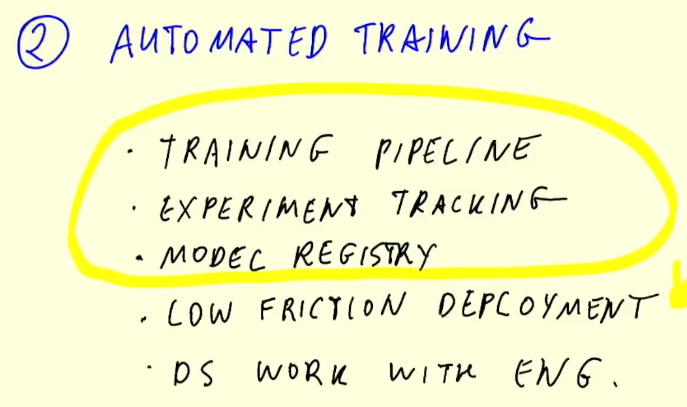 ② AUTOMATED TRAINING
· TRAINING PIPELINE
· EXPERIMENT TRACKING
· MODEL REGISTRY
· LOW FRICTION DEPLOYMENT
· DS WORK WITH ENG.